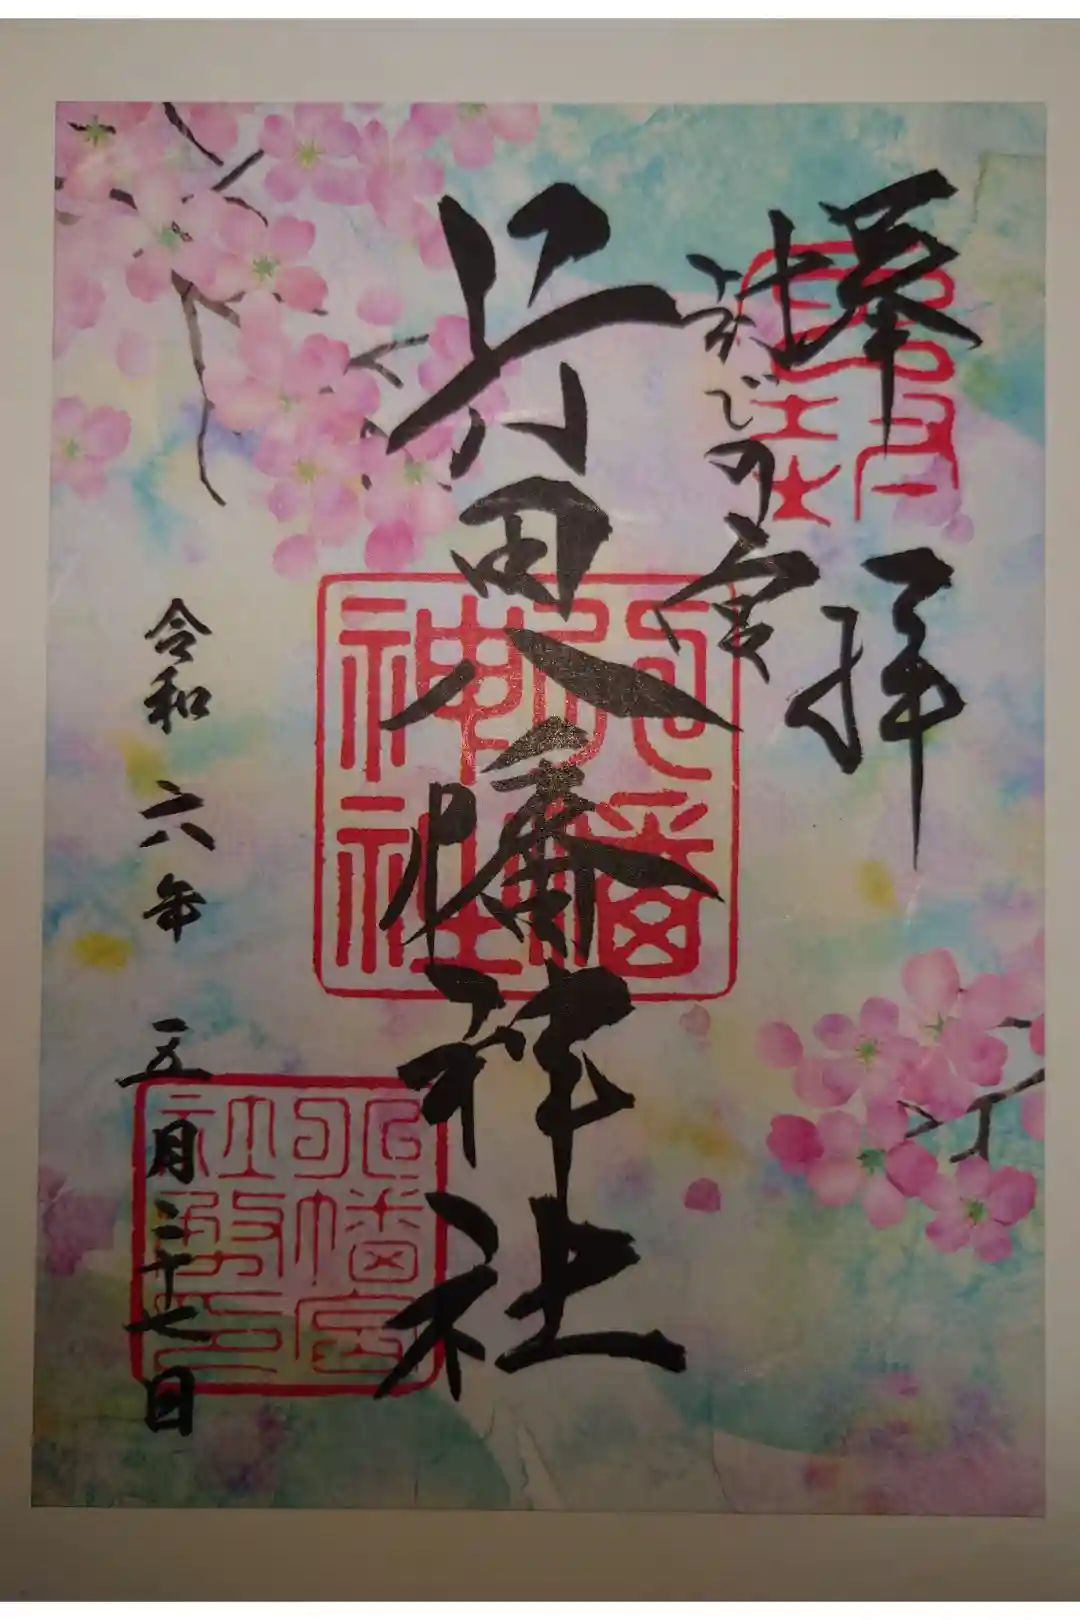 奉拝
封じの宮
行田八幡神社
八幡
神社
令和六年五月二十七日
八幡宮
社務印